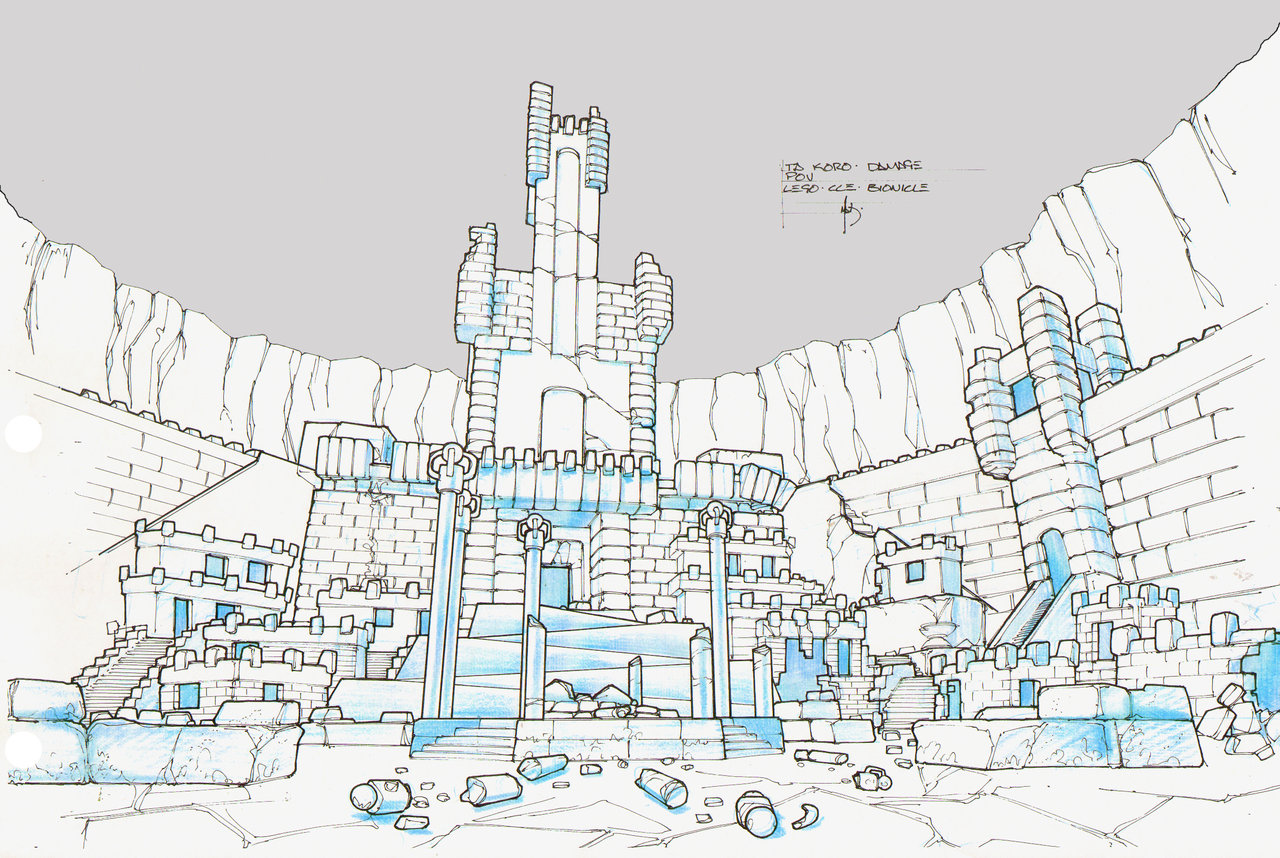 TA KORO · DAMAGE
POV
LEGO · CLE · BIONICLE